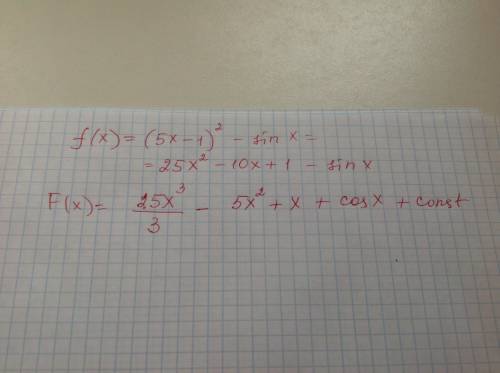 f(x) = (5x-1)² - sin x =
= 25x² - 10x + 1 - sin x
F(x) = 25x³/3 - 5x² + x + cos x + const